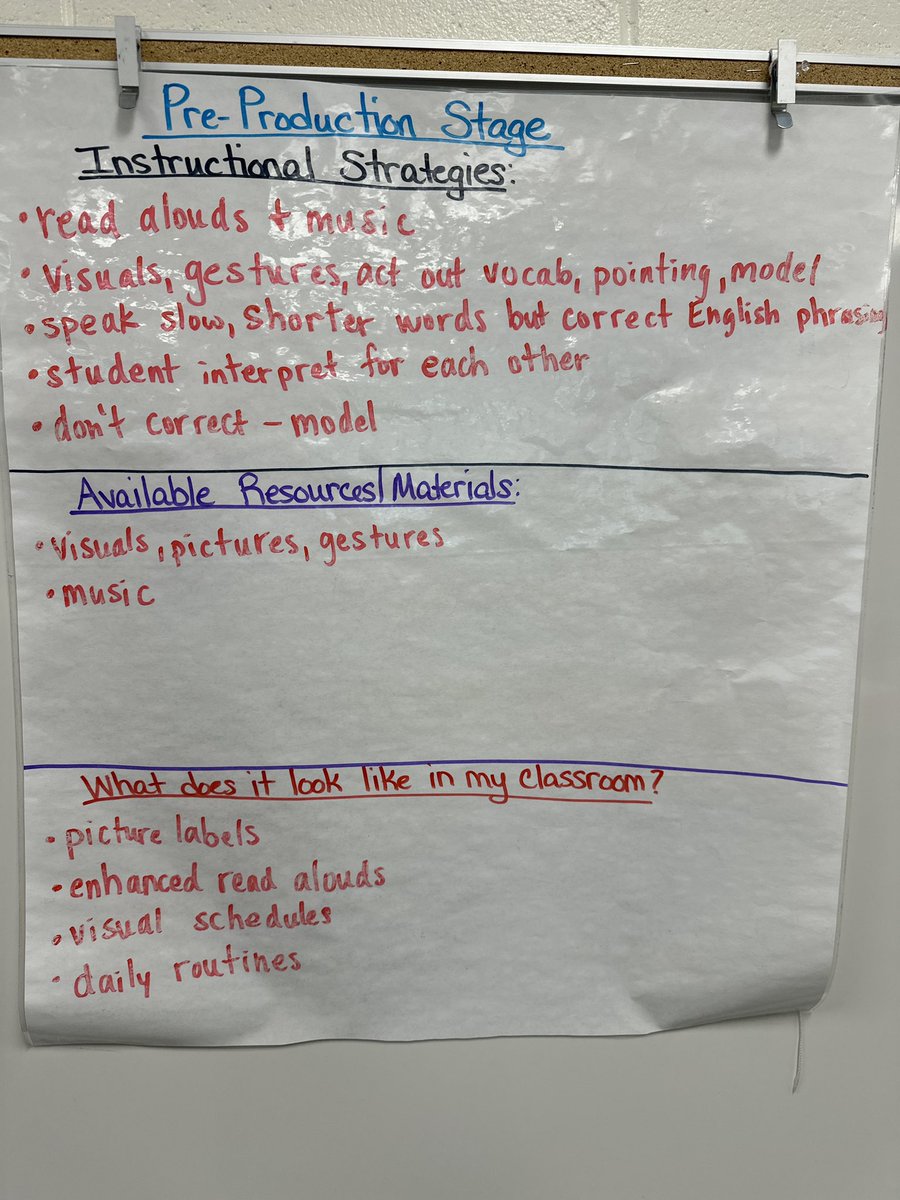 Pre-Production Stage
Instructional Strategies:
• read alouds + music
• visuals, gestures, act out vocab, pointing, model
• speak slow, shorter words but correct English phrasing
• student interpret for each other
• don't correct – model
Available Resources/Materials:
• visuals, pictures, gestures
• music
What does it look like in my classroom?
• picture labels
• enhanced read alouds
• visual schedules
• daily routines